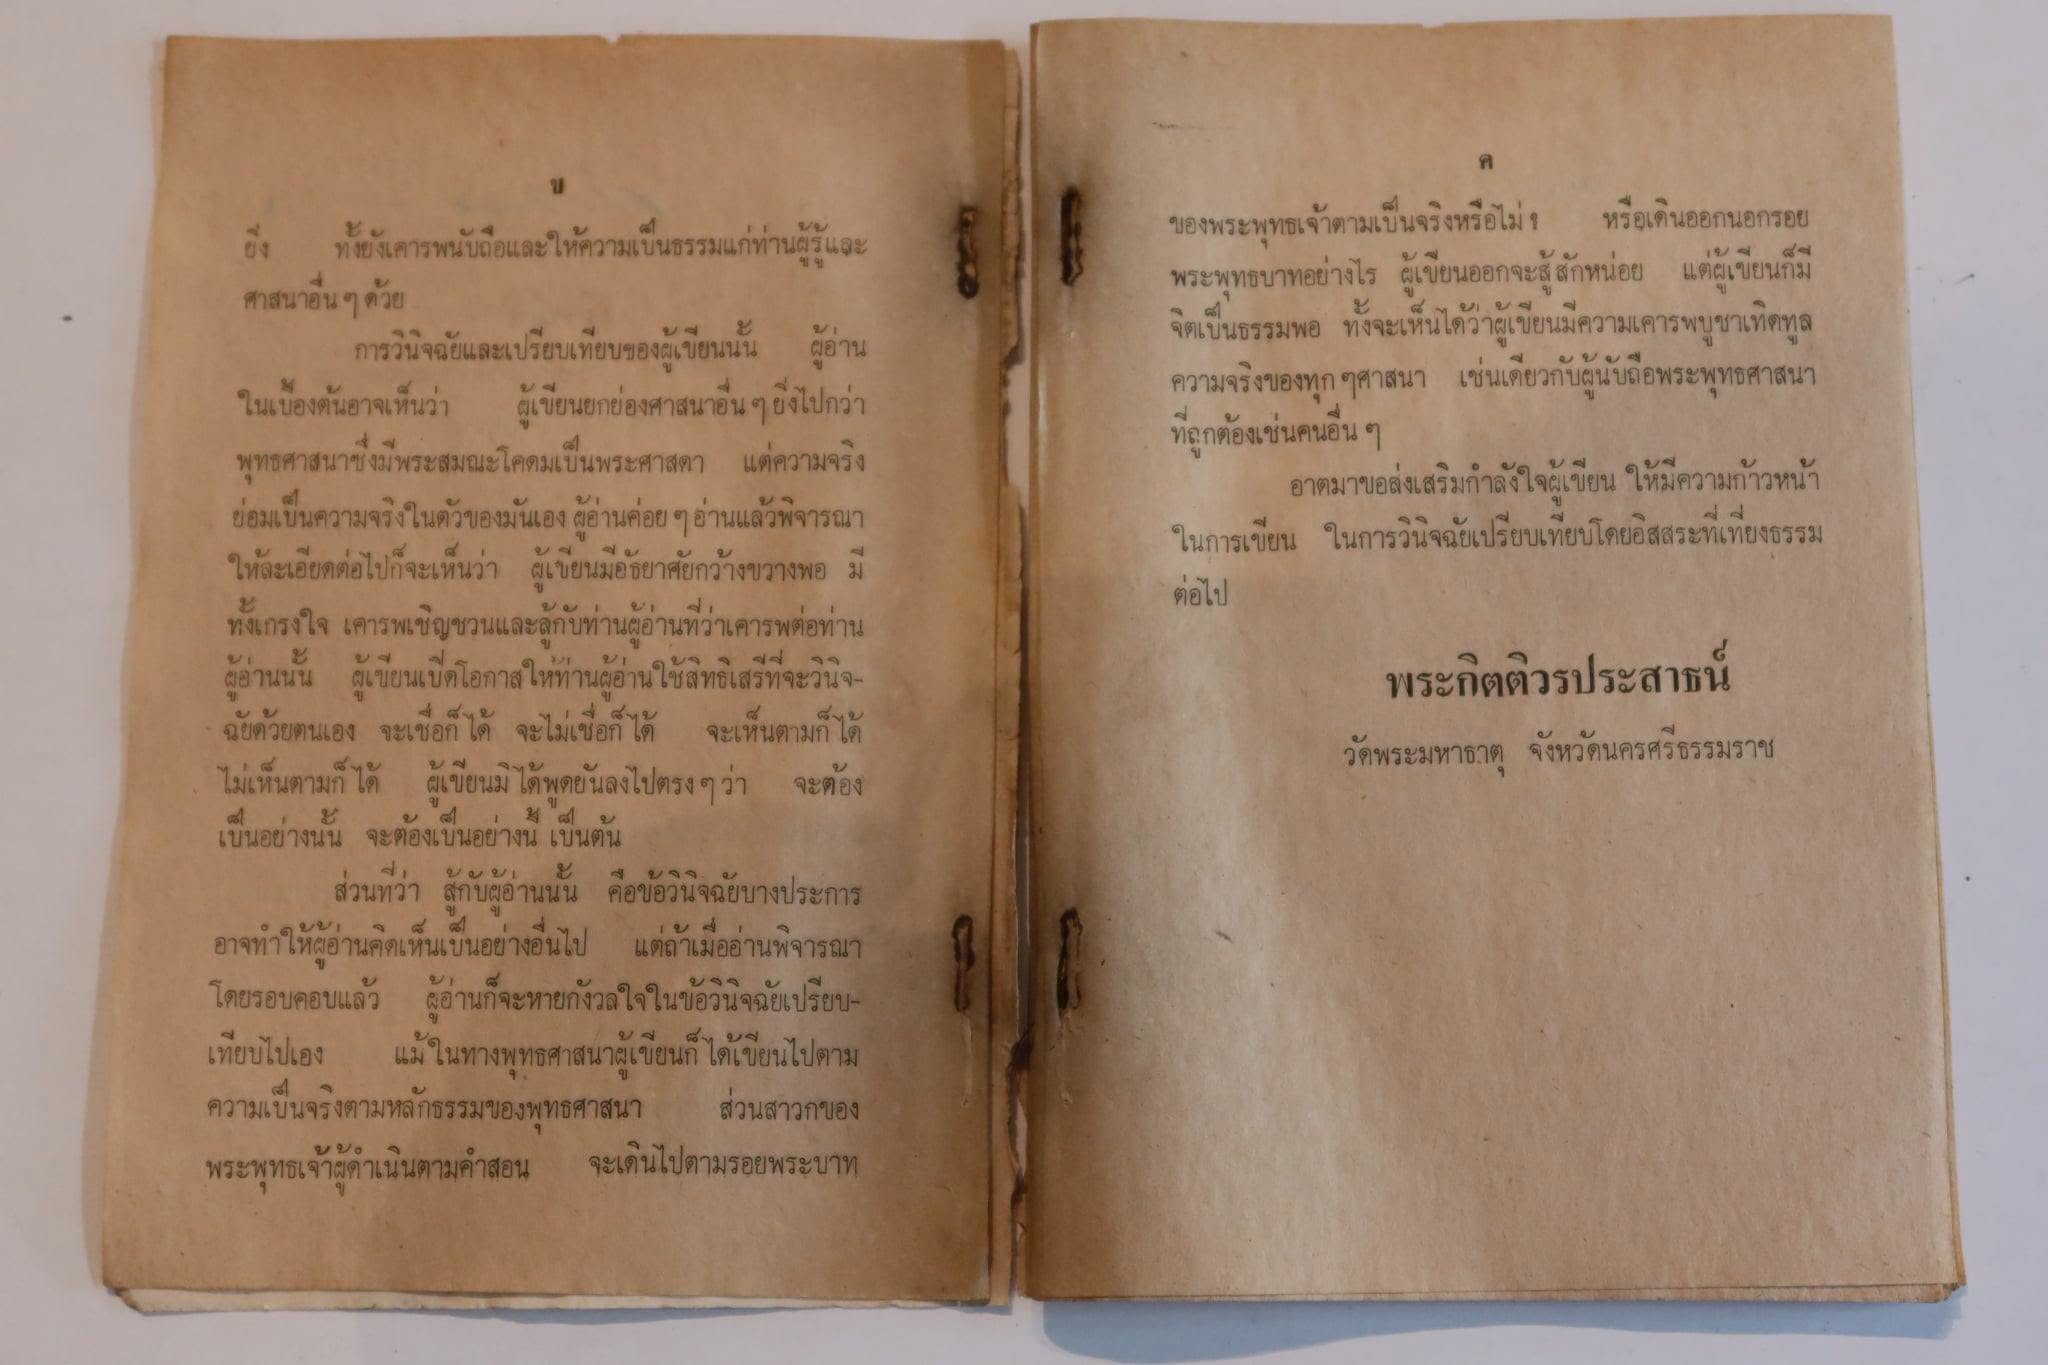 ข
ยิ่ง ทั้งยังเคารพนับถือและให้ความเป็นธรรมแก่ท่านผู้รู้และ
ศาสนาอื่น ๆ ด้วย
การวินิจฉัยและเปรียบเทียบของผู้เขียนนั้น ผู้อ่าน
ในเบื้องต้นอาจเห็นว่า ผู้เขียนยกย่องศาสนาอื่น ๆ ยิ่งไปกว่า
พุทธศาสนาซึ่งมีพระสมณะโคดมเป็นพระศาสดา แต่ความจริง
ย่อมเป็นความจริงในตัวของมันเอง ผู้อ่านค่อย ๆ อ่านแล้วพิจารณา
ให้ละเอียดต่อไปก็จะเห็นว่า ผู้เขียนมีอัธยาศัยกว้างขวางพอ มี
ทั้งเกรงใจ เคารพเชิญชวนและสู้กับท่านผู้อ่านที่ว่าเคารพต่อท่าน
ผู้อ่านนั้น ผู้เขียนเปิดโอกาสให้ท่านผู้อ่านใช้สิทธิเสรีที่จะวินิจ-
ฉัยด้วยตนเอง จะเชื่อก็ได้ จะไม่เชื่อก็ได้ จะเห็นตามก็ได้
ไม่เห็นตามก็ได้ ผู้เขียนมิได้พูดยันลงไปตรง ๆ ว่า จะต้อง
เป็นอย่างนั้น จะต้องเป็นอย่างนี้ เป็นต้น
ส่วนที่ว่า สู้กับผู้อ่านนั้น คือข้อวินิจฉัยบางประการ
อาจทำให้ผู้อ่านคิดเห็นเป็นอย่างอื่นไป แต่ถ้าเมื่ออ่านพิจารณา
โดยรอบคอบแล้ว ผู้อ่านก็จะหายกังวลใจในข้อวินิจฉัยเปรียบ-
เทียบไปเอง แม้ในทางพุทธศาสนาผู้เขียนก็ได้เขียนไปตาม
ความเป็นจริงตามหลักธรรมของพุทธศาสนา ส่วนสาวกของ
พระพุทธเจ้าผู้ดำเนินตามคำสอน จะเดินไปตามรอยพระบาท
ค
ของพระพุทธเจ้าตามเป็นจริงหรือไม่ ? หรือเดินออกนอกรอย
พระพุทธบาทอย่างไร ผู้เขียนออกจะสู้สักหน่อย แต่ผู้เขียนก็มี
จิตเป็นธรรมพอ ทั้งจะเห็นได้ว่าผู้เขียนมีความเคารพบูชาเทิดทูล
ความจริงของทุก ๆศาสนา เช่นเดียวกับผู้นับถือพระพุทธศาสนา
ที่ถูกต้องเช่นคนอื่น ๆ
อาตมาขอส่งเสริมกำลังใจผู้เขียน ให้มีความก้าวหน้า
ในการเขียน ในการวินิจฉัยเปรียบเทียบโดยอิสสระที่เที่ยงธรรม
ต่อไป
พระกิตติวรประสาธน์
วัดพระมหาธาตุ จังหวัดนครศรีธรรมราช